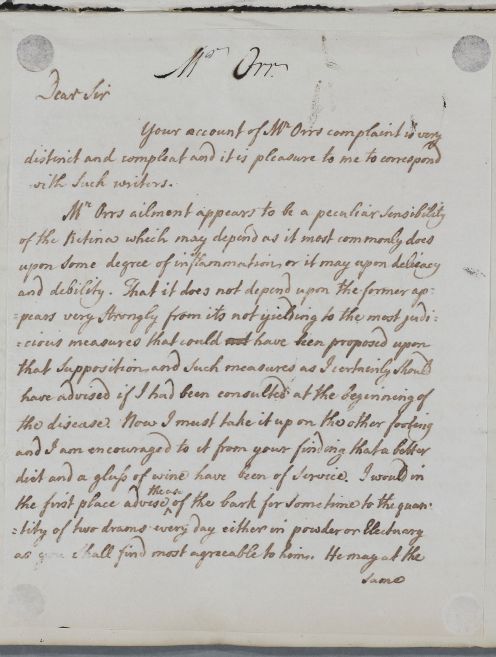 Mr Orr
Dear Sir
Your account of Mr Orrs complaint is very
distinct and compleat and it is pleasure to me to correspond
with such writers.
Mr Orrs ailment appears to be a peculiar sensibility
of the Retina which may depend as it most commonly does
upon some degree of inflammation, or it may upon delicacy
and debility. That it does not depend upon the former ap-
-pears very strongly from its not yielding to the most judi-
-cious measures that could not have been proposed upon
that supposition and such measures as I certainly should
have advised if I had been consulted at the beginning of
the disease. Now I must take it up on the other footing
and I am encouraged to it from your finding that a better
diet and a glass of wine have been of service. I would in
the first place advise the use of the bark for some time to the quan-
-tity of two drams every day either in powder or Electuary
as you shall find most agreeable to him. He may at the
same